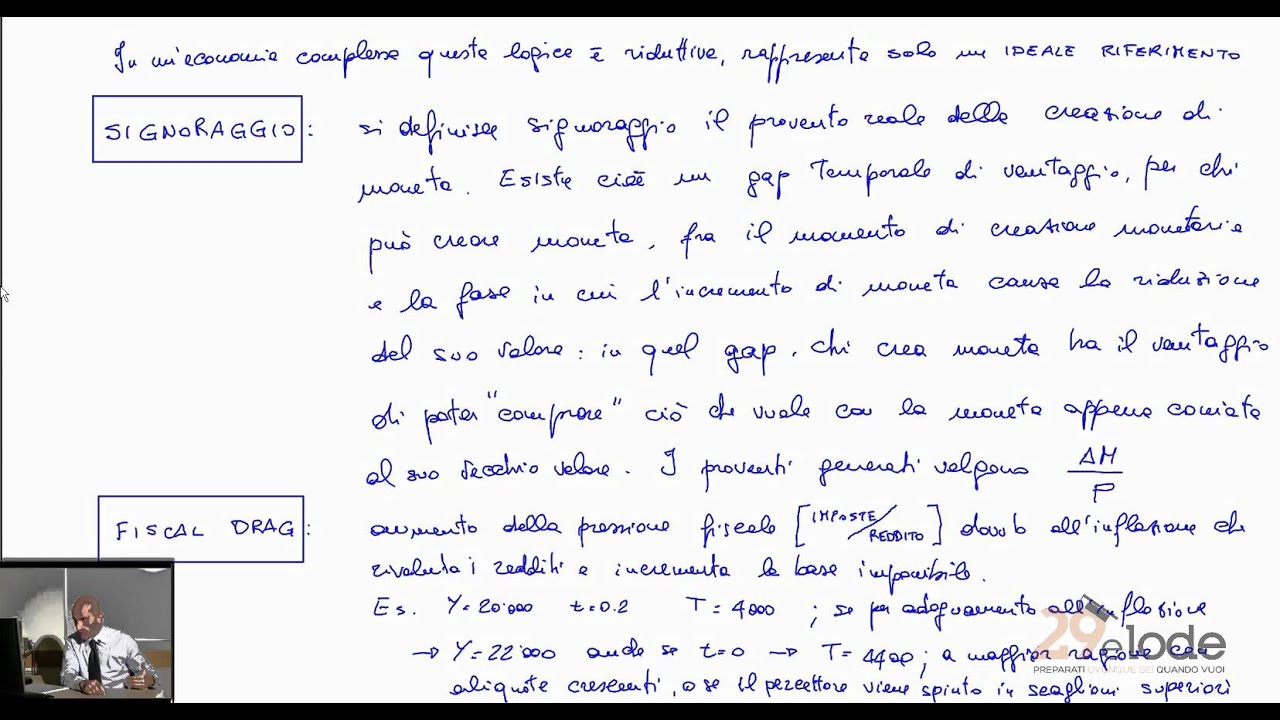 In un'economia complessa questa logica è riduttiva, rappresenta solo un IDEALE RIFERIMENTO
SIGNORAGGIO: si definisce signoraggio il provento reale della creazione di
moneta. Esiste cioè un gap temporale di vantaggio, per chi
può creare moneta, fra il momento di creazione monetaria
e la fase in cui l'incremento di moneta causa la riduzione
del suo valore: in quel gap, chi crea moneta ha il vantaggio
di poter "comprare" ciò che vuole con la moneta appena coniata
al suo vecchio valore. I proventi generati valgono ΔM/P
FISCAL DRAG: aumento della pressione fiscale [IMPOSTE/REDDITO] dovuto all'inflazione che
rivaluta i redditi e incrementa la base imponibile.
Es. Y=20'000 t=0.2 T=4000 ; se per adeguamento all'inflazione
→ Y=22'000 anche se t=0 → T=4400; a maggior ragione con
aliquote crescenti, o se il percettore viene spinto in scaglioni superiori
29elode
PREPARATI OVUNQUE SEI QUANDO VUOI